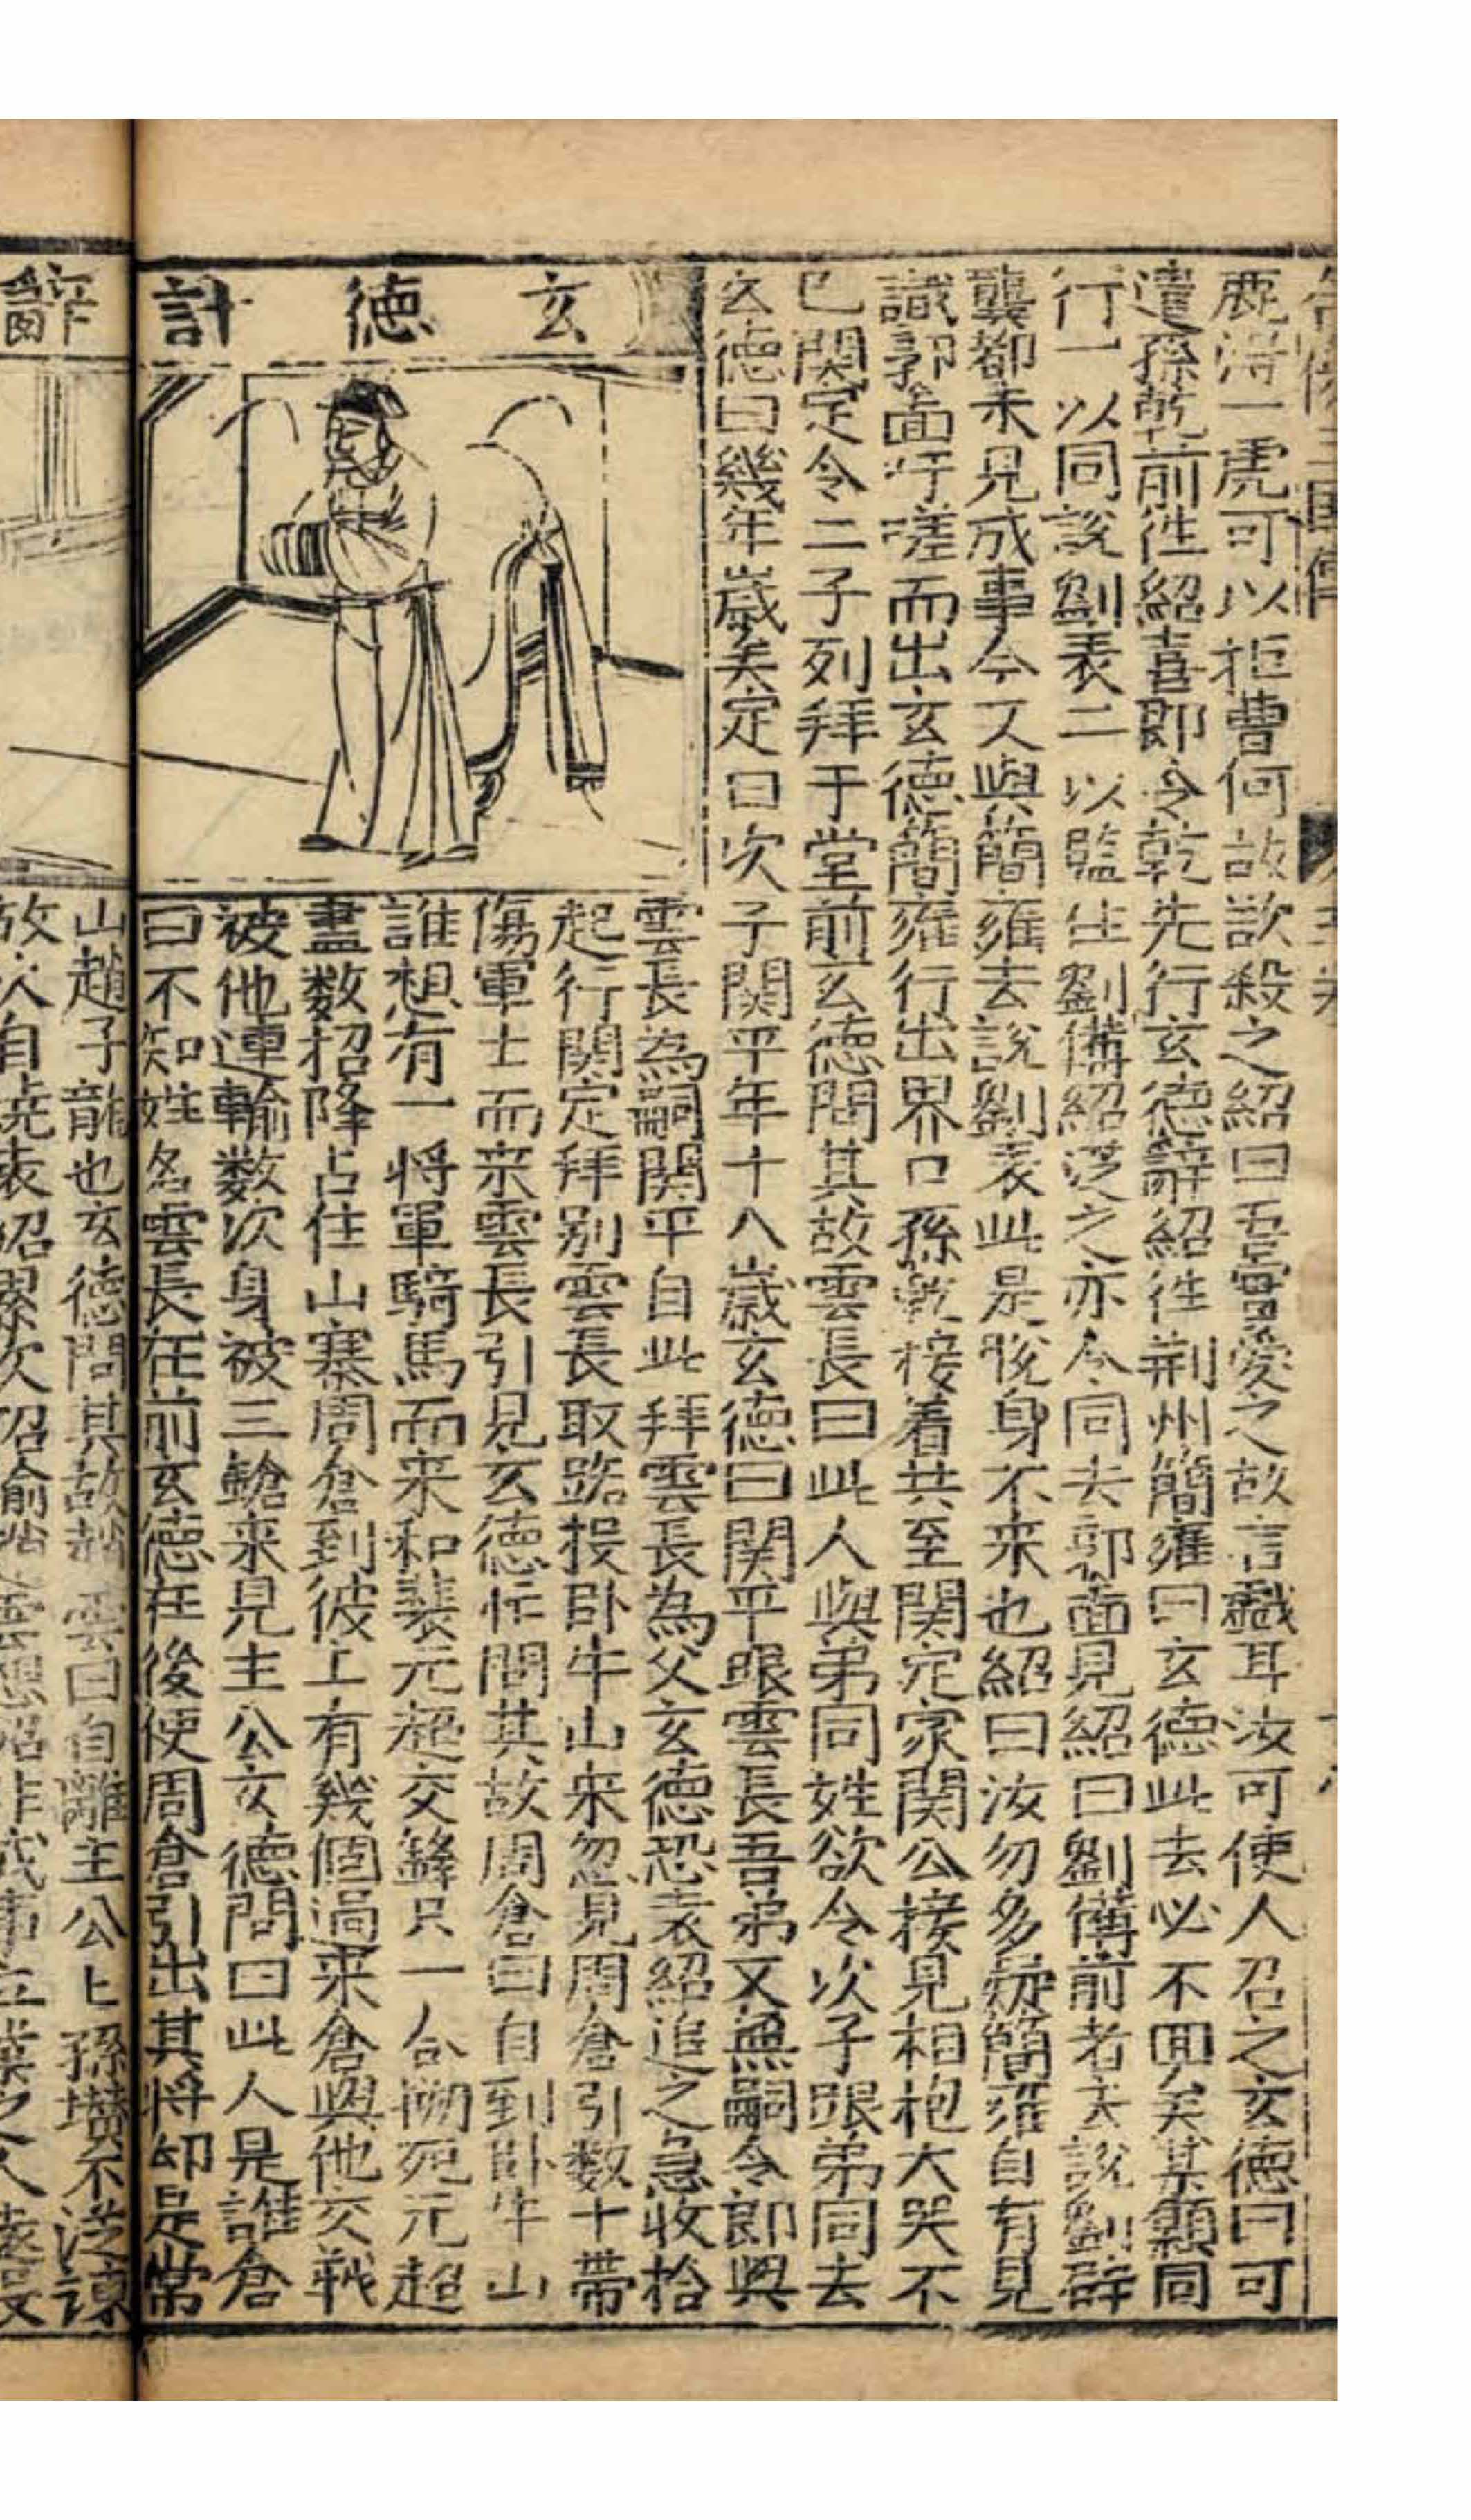 鹿得一虎可以拒曹何故欲殺之紹曰吾實愛之故言戲耳汝可使人召之玄德曰可
遣孫乾前徃紹喜即令乾先行玄德辞紹徃荆州簡雍曰玄德此去必不回矣某願同
行一以同説劉表二以監住劉俻紹從之亦令同去郭啚見紹曰劉俻前者去説劉辟
龔都未見成事今又與簡雍去説劉表此是脱身不来也紹曰汝勿多疑簡雍自有見
識郭啚吁嗟而出玄德簡雍行出界口孫乾接着共至関定家関公接見相抱大哭不
已関定令二子列拜于堂前玄德問其故雲長曰此人與弟同姓欲令次子跟弟同去
玄德曰幾年歲矣定曰次子関平年十八歲玄德曰関平跟雲長吾弟又無嗣令郎與
玄德計
雲長為嗣関平自此拜雲長為父玄德恐袁紹追之急收拾
起行関定拜别雲長取路投卧牛山来忽見周倉引数十帶
傷軍士而来雲長引見玄德忙問其故周倉曰自到卧牛山
誰想有一将軍騎馬而来和裴元超交鋒只一合搠死元超
盡数招降占住山寨周倉到彼上有幾個過来倉與他交戰
被他連輸数次身被三鎗来見主公玄德問曰此人是誰倉
曰不知姓名雲長在前玄德在後使周倉引出其将却是常
辭
山趙子龍也玄德問其故趙雲曰自離主公上孫瓚不從諫